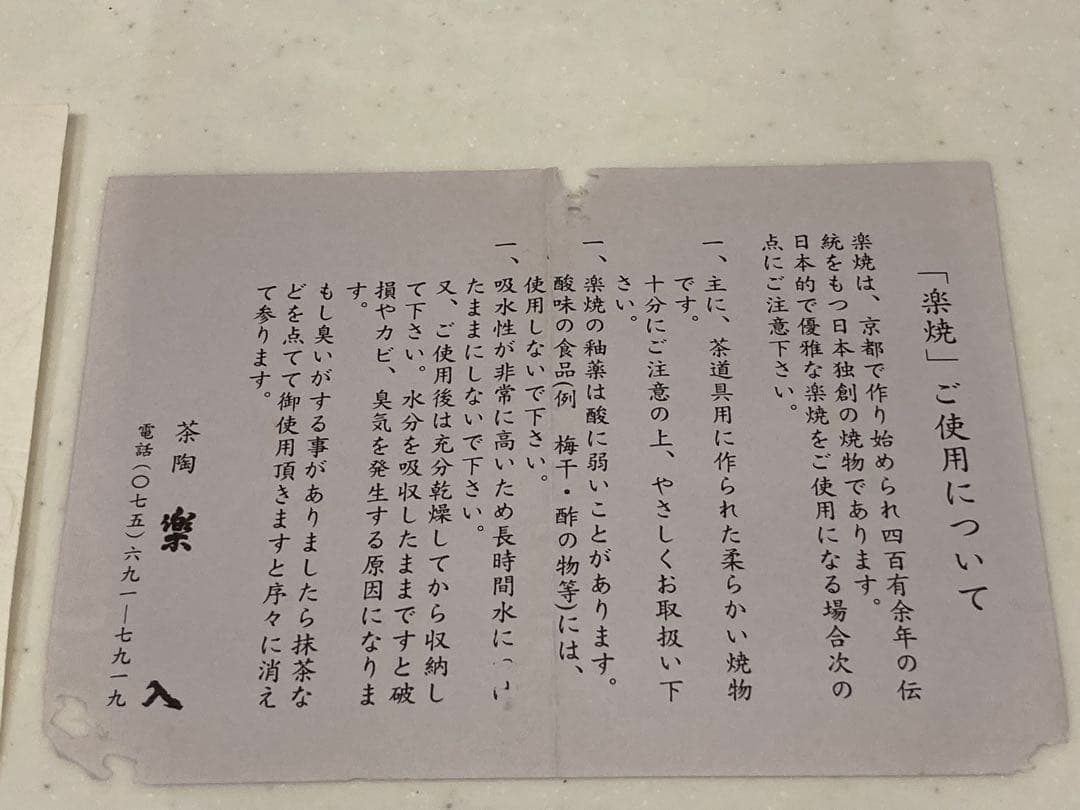 「楽焼」ご使用について
楽焼は、京都で作り始められ四百有余年の伝
統をもつ日本独創の焼物であります。
日本的で優雅な楽焼をご使用になる場合次の
点にご注意下さい。
一、主に、茶道具用に作られた柔らかい焼物
です。
十分にご注意の上、やさしくお取扱い下
さい。
一、楽焼の釉薬は酸に弱いことがあります。
酸味の食品(例　梅干・酢の物等)には、
使用しないで下さい。
一、吸水性が非常に高いため長時間水に
たままにしないで下さい。
又、ご使用後は充分乾燥してから収納し
て下さい。水分を吸収したままですと破
損やカビ、臭気を発生する原因になりま
す。
もし臭いがする事がありましたら抹茶な
どを点てて御使用頂きますと序々に消え
て参ります。
茶陶　楽　入
電話(〇七五)六九一―七九一九